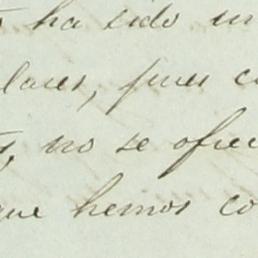 ha sido un
lares, pues c
s, no se ofrec
que hemos co